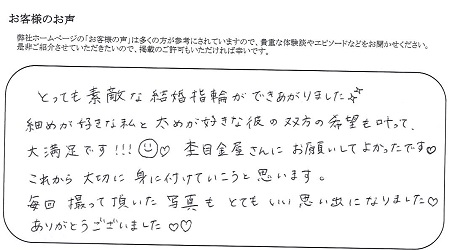 お客様のお声
弊社ホームページの「お客様の声」は多くの方が参考にされていますので、貴重な体験談やエピソードなどをお聞かせください。
是非ご紹介させていただきたいので、掲載のご許可もいただければ幸いです。
とっても素敵な結婚指輪ができあがりました
細めが好きな私と太めが好きな彼の双方の希望も叶って、
大満足です!!!♡ 杢目金屋さんにお願いしてよかったです♡
これから大切に身に付けていこうと思います。
毎回撮って頂いた写真もとてもいい思い出になりました♡
ありがとうございました♡♡